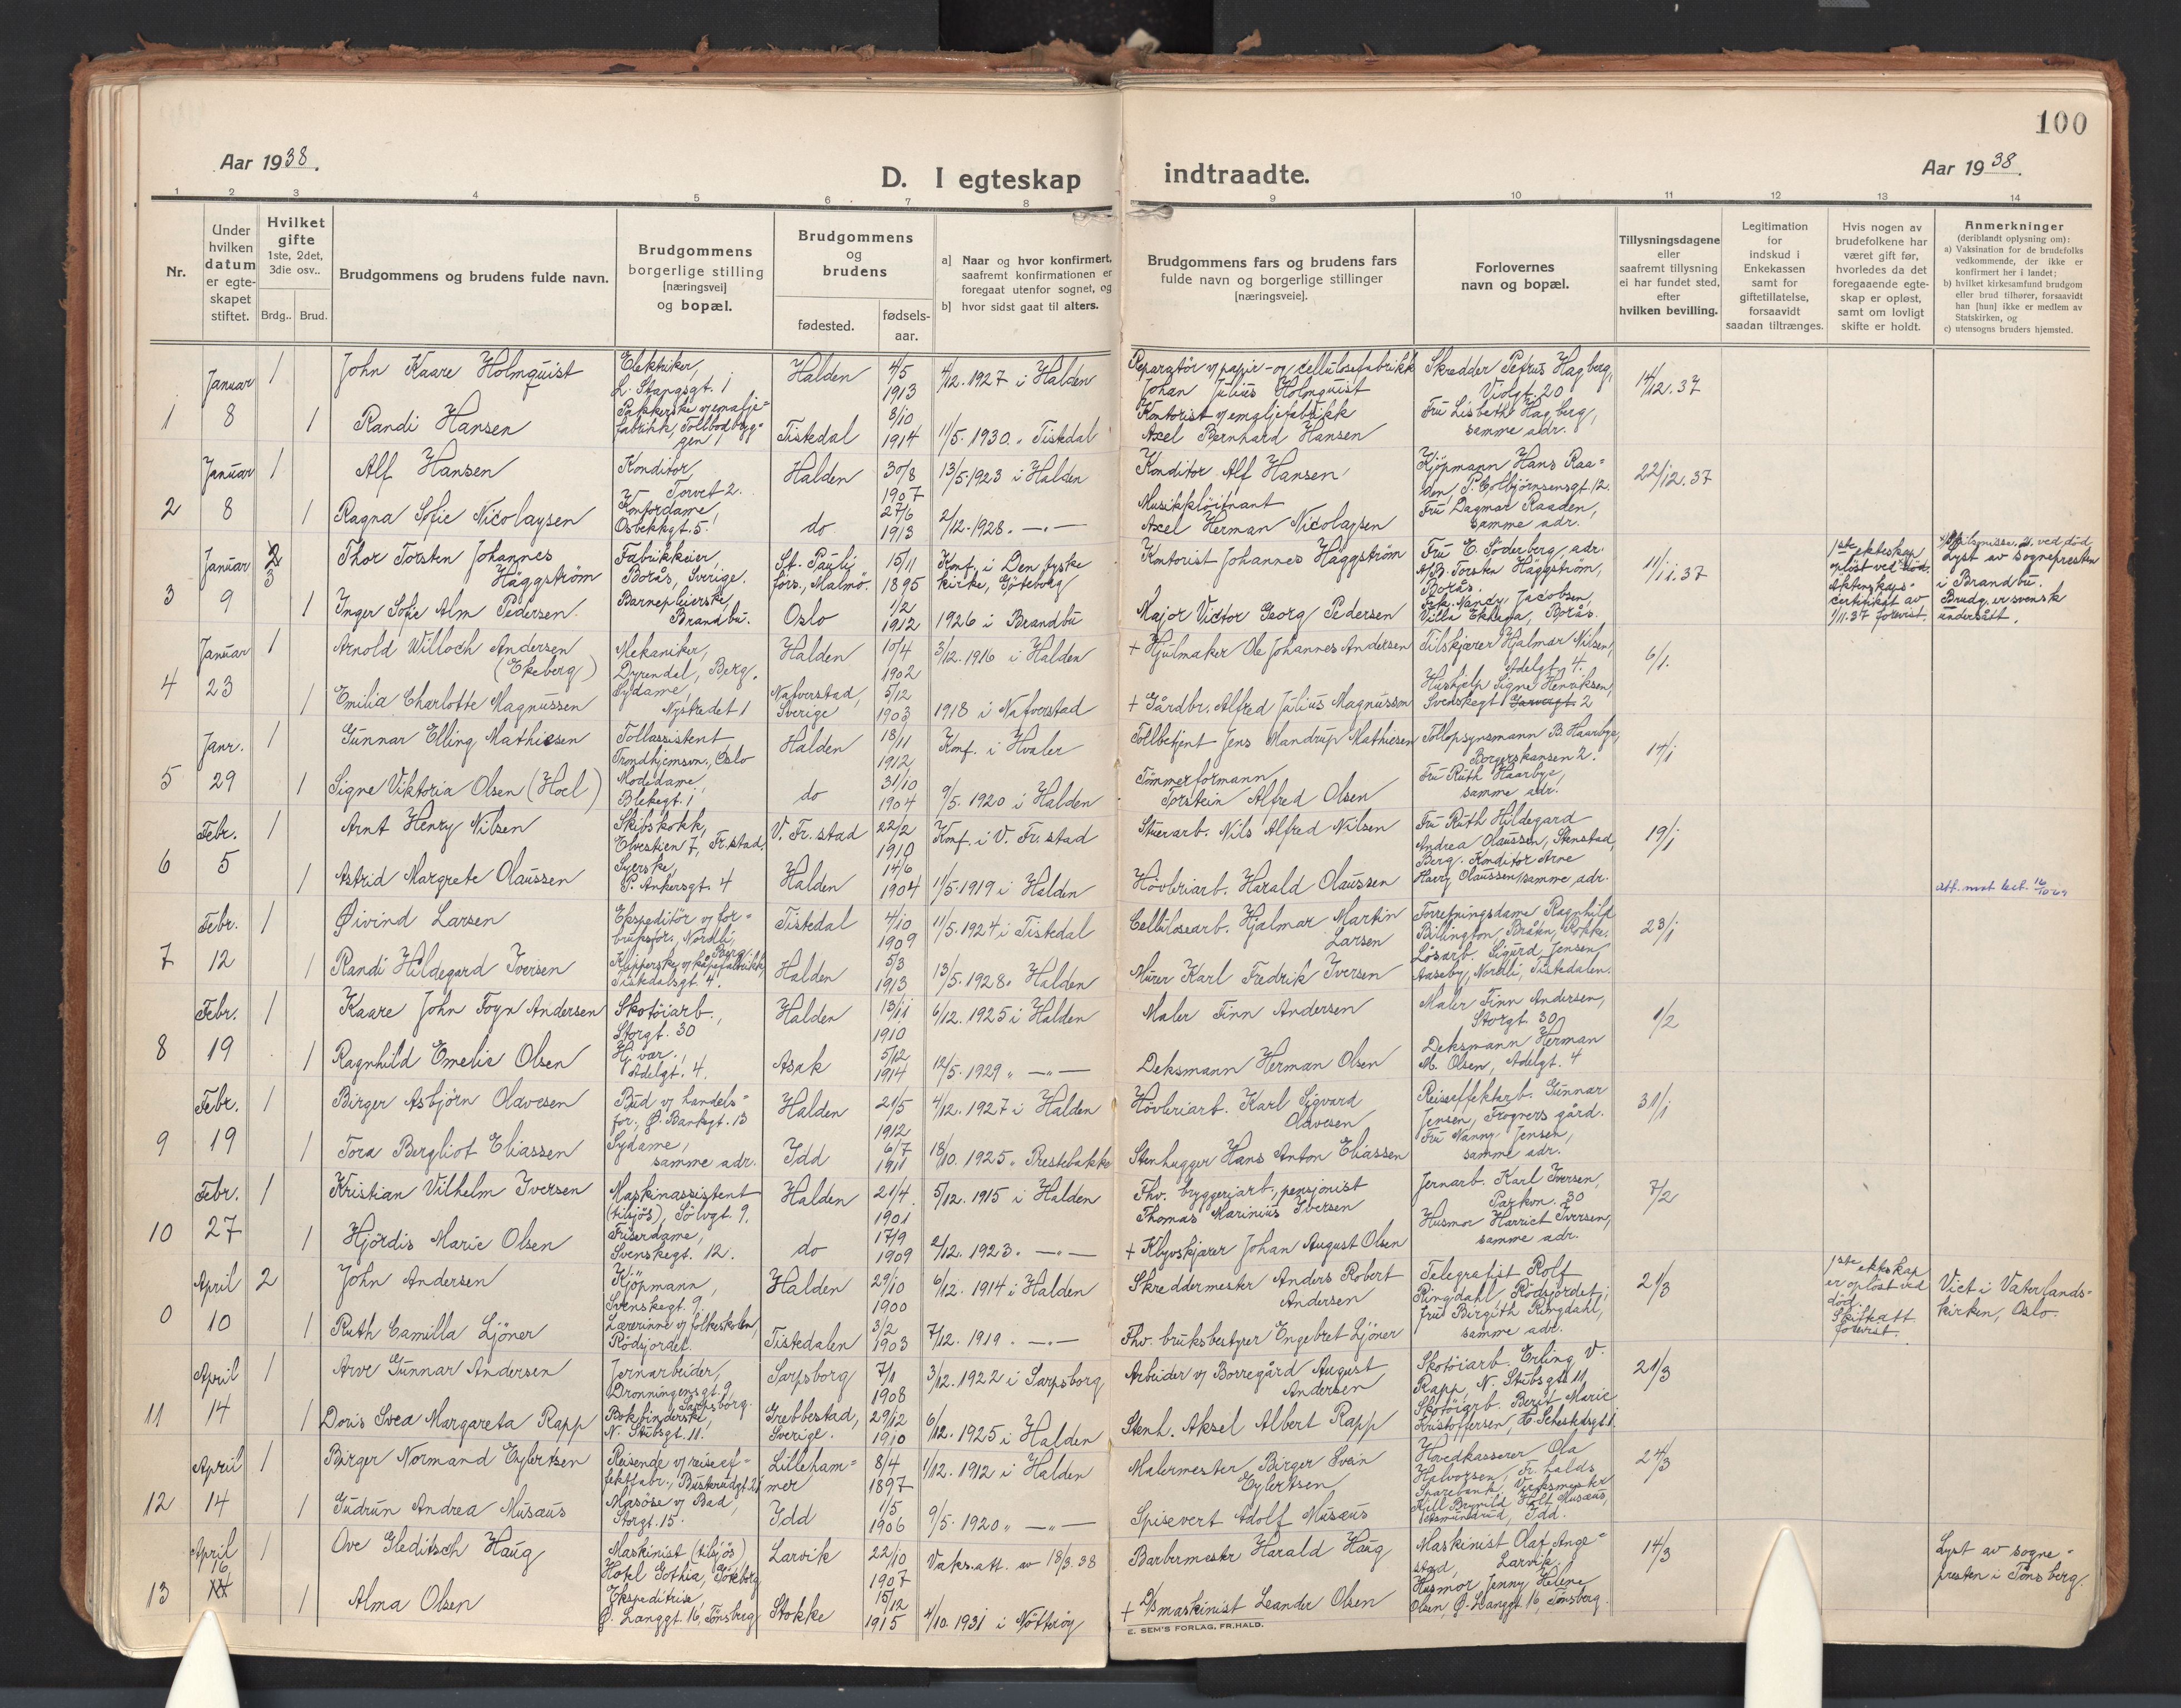 100
Aar 1938.
D. I egteskap indtraadte.
Aar 1938.
1 2 3 4 5 6 7 8 9 10 11 12 13 14
Nr.
Under hvilken datum er egte-skapet stiftet.
Hvilket gifte 1ste, 2det, 3die osv..
Brdg.. Brud.
Brudgommens og brudens fulde navn.
Brudgommens borgerlige stilling [næringsvei] og bopæl.
Brudgommens og brudens
fødested.
fødsels-aar.
a] Naar og hvor konfirmert, saafremt konfirmationen er foregaat utenfor sognet, og
b] hvor sidst gaat til alters.
Brudgommens fars og brudens fars fulde navn og borgerlige stillinger [næringsveie].
Forlovernes navn og bopæl.
Tillysningsdagene eller saafremt tillysning ei har fundet sted, efter hvilken bevilling.
Legitimation for indskud i Enkekassen samt for giftetillatelse, forsaavidt saadan tiltrænges.
Hvis nogen av brudefolkene har været gift før, hvorledes da det foregaaende egte-skap er opløst, samt om lovligt skifte er holdt.
Anmerkninger
(deriblandt oplysning om):
a) Vaksination for de brudefolks vedkommende, der ikke er konfirmert her i landet;
b) hvilket kirkesamfund brudgom eller brud tilhører, forsaavidt han [hun] ikke er medlem av Statskirken, og
c) utensogns bruders hjemsted.
Januar 1 John Kaare Holmquist Elektriker, L. Stangsgt. 1 Halden 4/5 1913 4/12. 1927 i Halden Reparatör v/ papir- og cellulosefabrikk Johan Julius Holmquist Skredder Petrus Hagberg, Violgt. 20 14/12.37
1 8 1 Randi Hansen Pakkerske v/ emalje=fabrikk, Tollbodbryg=gen 1 Tistedal 8/10 1914 11/5. 1930. " Tistedal Kontorist v/ emaljefabrikk Axel Bernhard Hansen Fru Lisbeth Hagberg, samme adr.
Januar 1 Alf Hansen Konditor, Torvet 2. Halden 30/8 1907 13/5.1923 i Halden Konditor Alf Hansen Kjöpmann Hans Raa=den, P. Colbjörnsensgt. 12. 22/12.37
2 8 1 Ragna Sofie Nicolaysen Kontordame, Osbekkgt. 5. do 27/6 1913 2/12. 1928. —"— Musikklöitnant Axel Herman Nicolaysen Fru Dagmar Raaden, samme adr.
Januar 3 Thor Torsten Johannes Häggström Fabrikkeier, Borås, Sverige. St. Pauli förs., Malmö. 15/11 1895 Konf. i Den tyske kirke, Göteborg Kontorist Johannes Häggström Fru E. Söderberg, adr. A/B. Torsten Häggström, Borås. 11/11.37 1ste ekteskap opløst ved död. Äktenskaps=certifikat av 1/11.37 forevist. Lyst av sognepresten i Brandbu. Brudg. er svensk undersått.
3 9 1 Inger Sofie Alm Pedersen. Barnepleierske, Brandbu. Oslo 1/2 1912 1926 i Brandbu Major Victor Georg Pedersen Frk. Nandy Jacobsen, Villa Ekhaga, Borås.
Januar 1 Arnold Willoch Andersen (Ekeberg) Mekaniker, Dyrendal, Berg. Halden 10/4 1902 3/12. 1916 i Halden + Hjulmaker Ole Johannes Andersen Filskjærer Hjalmar Nilsen, Adelgt. 4. 6/1.
4 23 1 Emilia Charlotte Magnussen Sydame, Nystredet 1 Nafverstad, Sverige 5/12 1903 1918 i Nafverstad + Gårdbr. Alfred Julius Magnusson Hushjelp Signe Henriksen, Svenskegt. 2
Janr. 1 Gunnar Elling Mathiesen Tollassistent Trondhjemsvn., Oslo Halden 18/11 1912 Konf. i Hvaler Tollbetjent Jens Mandrup Mathiesen Tollopsynsmann B. Haarbye, Borgerskansen 2. 14/1
5 29 1 Signe Viktoria Olsen (Hoel) Modedame, Blekegt. 1 do 31/10 1904 9/5. 1920 i Halden Tömmerformann Torstein Alfred Olsen Fru Ruth Haarbye, samme adr.
Febr. 1 Arnt Henry Nilsen Skibskokk, Elvestien 7, Fr.stad. V. Fr.stad 22/2 1910 Konf. i V. Fr.stad Stuerarb. Nils Alfred Nilsen Fru Ruth Hildegard Andrea Olaussen, Stenstad, Berg. 19/1
6 5 1 Astrid Margrete Olaussen Syerske, P. Ankersgt. 4 Halden 14/6 1904 11/5.1919 i Halden Hövleriarb. Harald Olaussen Konditor Arne Harry Olaussen, samme adr.
Febr. 1 Øivind Larsen Ekspeditör v/ for=bruksfor., Nordli, Berg Tistedal 4/10 1909 11/5.1924 i Tistedal Cellulosearb. Hjalmar Martin Larsen Forretningsdame Ragnhild Billington, Bråtn, Rokke. 23/1
7 12 1 Randi Hildegard Iversen Klipperske v/ kåpefabrikk, Tistedalsgt. 4. Halden 5/3 1913 13/5.1928. " Halden Murer Karl Fredrik Iversen Lösarb. Sigurd Jensen Aaseby, Nordli, Tistedalen.
Febr. 1 Kaare John Fogn Andersen Skotöiarb., Storgt. 30 Halden 13/11 1910 6/12. 1925 i Halden Maler Finn Andersen Maler Finn Andersen, Storgt. 30 1/2
8 19 1 Ragnhild Emelie Olsen H. var., Adelgt. 4. Asak 5/12 1914 12/5. 1929 " —"— Deksmann Herman Olsen Deksmann Herman M. Olsen, Adelgt. 4
Febr. 1 Birger Asbjörn Olavesen Bud v/ handels=for., Ø. Banksgt. 13 Halden 21/5 1912 4/12. 1927 i Halden Hövleriarb. Karl Sigvard Olavesen Reiseeffektarb. Gunnar Jensen, Frogners gård. 31/1
9 19 1 Tora Bergliot Eliassen Sydame, samme adr. Idd 6/7 1911 18/10. 1925 " Prestebakke Stenhugger Hans Anton Eliassen Fru Nanny Jensen, samme adr.
Febr. 1 Kristian Vilhelm Iversen Maskinassistent (tilsjös), Sölvgt. 9. Halden 21/4 1901 5/12. 1915 i Halden Fhv. bryggeriarb., pensjonist Thomas Marinius Iversen Jernarb. Karl Iversen, Parkvn. 30 7/2
10 27 1 Hjördis Marie Olsen Friserdame, Svenskegt. 12. do 17/9 1909 2/12. 1923. —"— + Kløvskjærer Johan August Olsen Husmor Harriet Iversen, samme adr.
April 2 John Andersen Kjöpmann, Svenskegt. 9. Halden 29/10 1900 6/12. 1914 i Halden Skreddermester Anders Robert Andersen Telegrafist Rolf Ringdahl, Rödsfjordet; 21/3 1ste ekteskap er oplöst ved död. Skifteatt. forevist. Viet i Vaterlands=kirken, Oslo.
0 10 1 Ruth Camilla Ljöner Lærerinne v/ folkeskolen, Rödsjordet. Tistedalen 3/2 1903 7/12. 1919. —"— Fhv. bruksbestyrer Engebret Ljöner fru Birgith Ringdahl, samme adr.
April 1 Arve Gunnar Andersen Jernarbeider, Dronningensgt. 9, Sarpsborg. Sarpsborg 7/1 1908 3/12. 1922 i Sarpsborg Arbeider v/ Borregård August Andersen Skotöiarb. Erling V. Rapp, N. Stubsgt. 11. 21/3
11 14 1 Doris Svea Margareta Rapp Bokbinderske, N. Stubsgt. 11. Grebbestad, Sverige. 29/12 1910 6/12. 1925 i Halden Stenh. Aksel Albert Rapp Skotöiarb. Berit Marie Kristoffersen,
April 1 Birger Normand Eylertsen Reisende v/ reiseef=fektfabr., Buskrudgt. 21 Lilleham=mer 8/4 1897 1/12. 1912 i Halden Malermester Birger Svein Eylertsen Hovedkasserer Ola Halvorsen, Fr.halds Sparebank. 24/3
12 14 1 Gudrun Andrea Musæus Masöse v/ Bad, Storgt. 15. Idd 1/5 1906 9/5. 1920 " —"— Spisevert Adolf Musæus Musæus, Idd.
April 1 Ove Gleditsch Haug Maskinist (tilsjös) Hotel Gothia, Göteborg Larvik 22/10 1907 Vaks.att. av 18/3.38 Barbermester Harald Haug Maskinist Olaf Ange=stad, Larvik. 14/3 Lyst av sogne=presten i Tönsberg.
13 16 1 Alma Olsen Ekspeditrise, Ø. Langgt. 16, Tönsberg Stokke 15/12 1915 4/10. 1931 i Nötteröy + D/smaskinist Leander Olsen Husmor Jenny Helene Olsen, Ø. Langgt. 16, Tönsberg.
E. SEM'S FORLAG, FR.HALD.